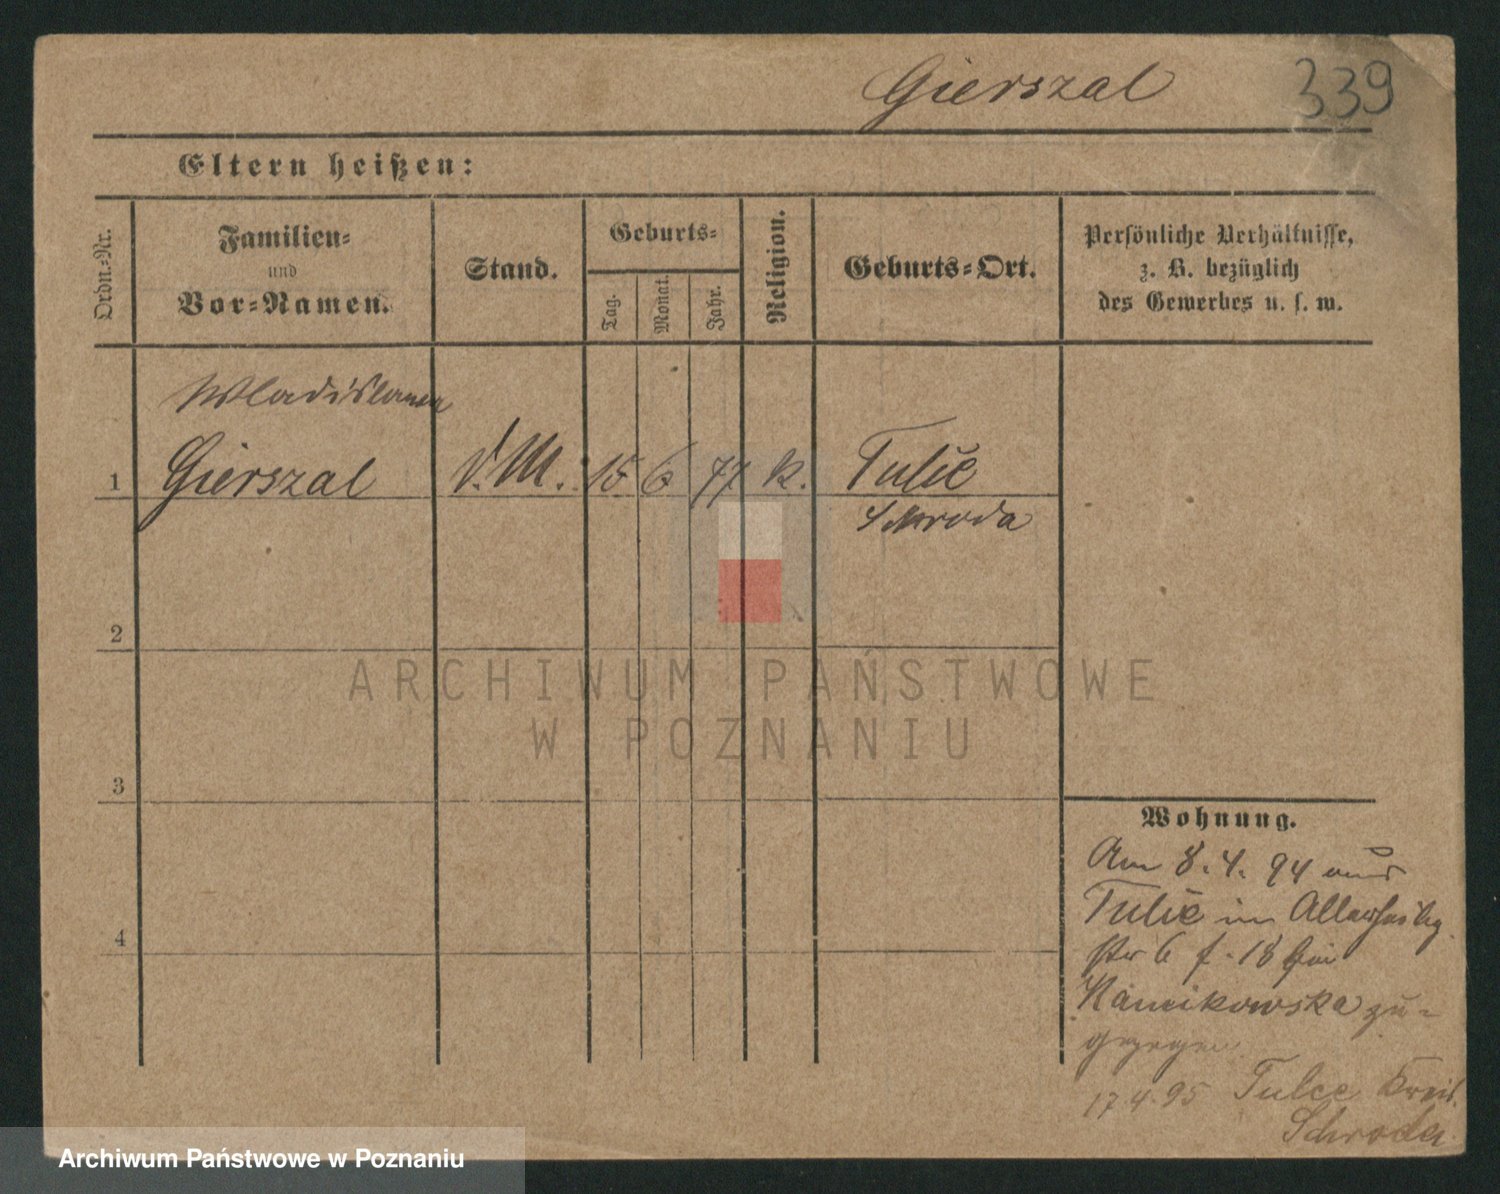 Gierszal 339
Eltern heißen:
Ordn.-Nr.
Familien-
und
Vor-Namen.
Stand.
Geburts-
Tag.
Monat.
Jahr.
Religion.
Geburts-Ort.
Persönliche Verhältnisse,
z. B. bezüglich
des Gewerbes u. s. w.
Wladislawa
1 Gierszal d. M. 15 6 77 k. Tulce
Schroda
2
3
4
ARCHIWUM PAŃSTWOWE
W POZNANIU
Wohnung.
Am 8. 4. 94 aus
Tulce in Allerheilig
str 6 f. 18 bei
zu-
gezogen
17.4.95 Tulce Kreis
Schroda
Archiwum Państwowe w Poznaniu